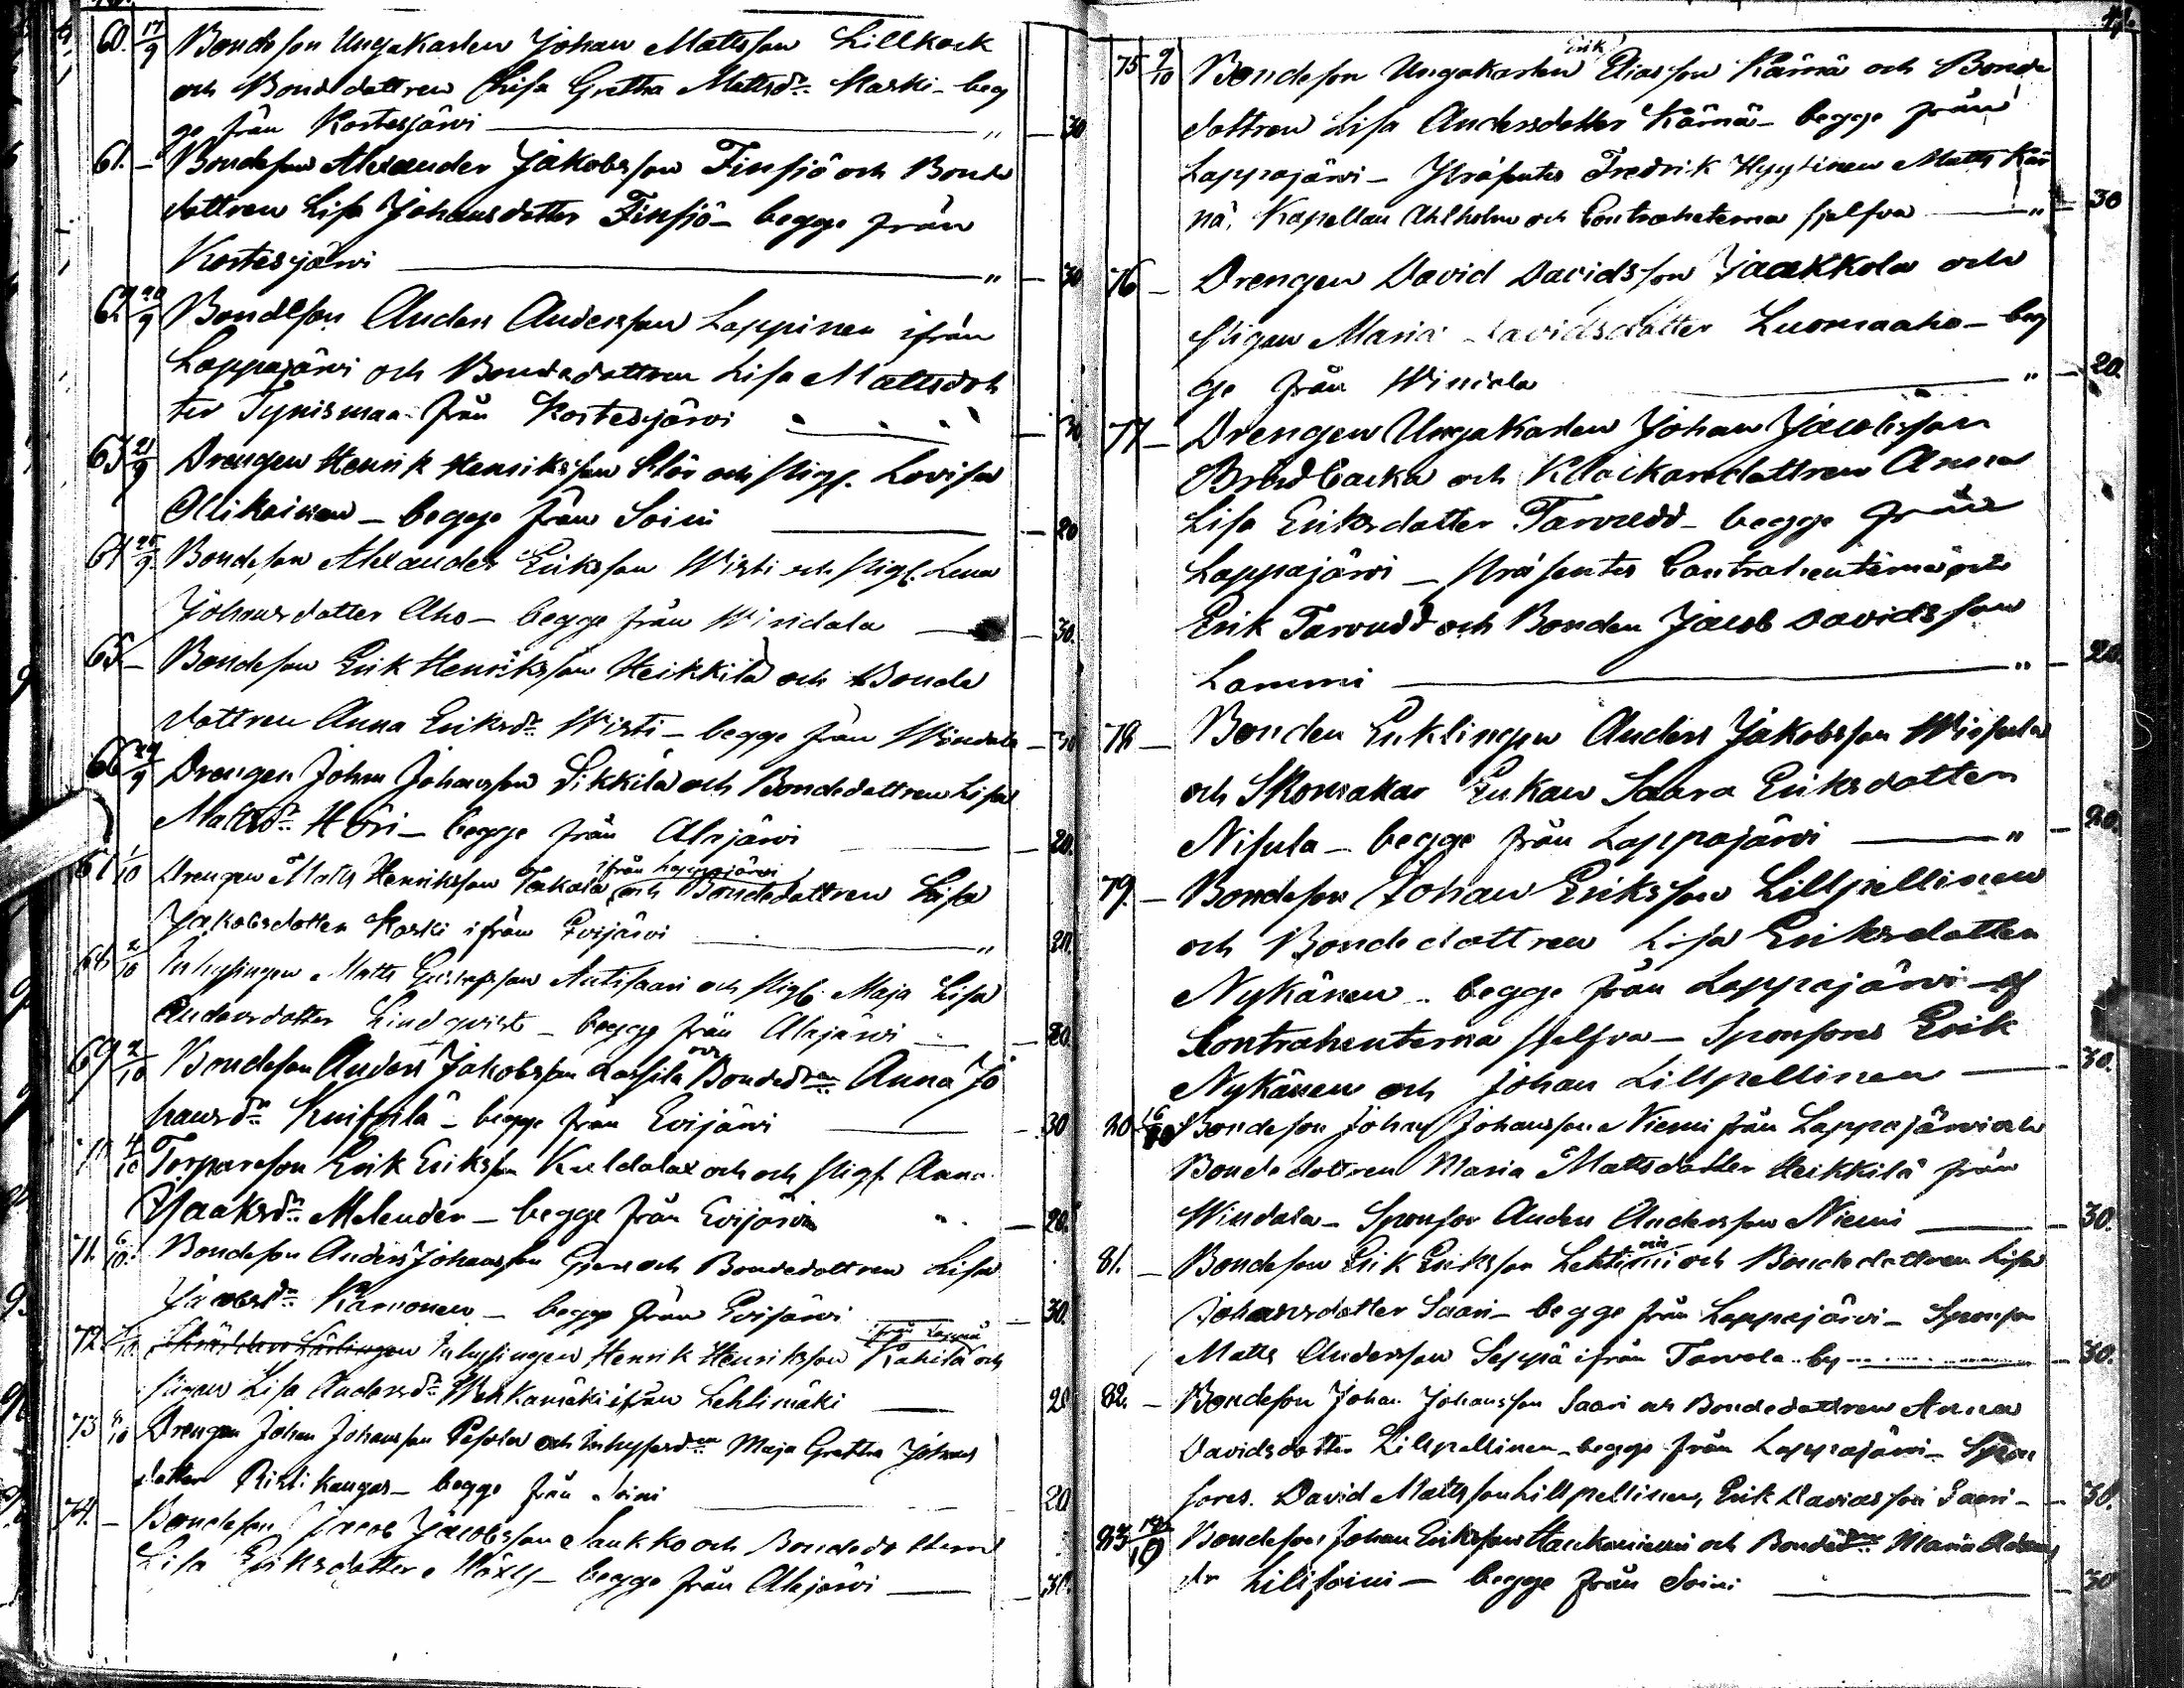 60. 17/9 Bondeson Ungakarlen Johan Mattsson Lillkock
och Bondedottren Lisa Gretha Mattsdr. Karki - beg
ge från Kortesjärvi " — 30
61. — Bondeson Alexander Jakobsson Finsjö och Bonde
dottren Lisa Johansdotter Finsjö - begge från
Kortesjärvi " — 30
62. 20/9 Bondeson Anders Andersson Lappinen ifrån
Lappajärvi och Bondedottren Lisa Mattsdot
ter Tynismaa från Kortesjärvi — 30
63 21/9 Drengen Henrik Henriksson Klör och Pig. Lovisa
Ollikainen - begge från Soini — 20
64 25/9 Bondeson Alexander Eriksson Wisti och Pig. Lena
Johansdotter Aho - begge från Windala — 30.
65 — Bondeson Erik Henriksson Heikkilä och Bonde
dottren Anna Eriksdr. Wisti - begge från Windala — 30
66 29/9 Drengen Johan Johansson Sikkilä och Bondedottren Lisa
Mattsdr. Höri - begge från Alajärvi — 20.
67 1/10 Drengen Matts Henriksson Takala ifrån Lappajärvi och Bondedottren Lisa
Jakobsdotter Koski ifrån Evijärvi " 20.
68 2/10 Inhysingen Matts Gustafsson Antisaari och Pig. Maja Lisa
Andersdotter Lindqvist - begge från Alajärvi — 20.
69 2/10 Bondeson Anders Jakobsson Lassila och Bondedn Anna Jo
hansdr. Knifsilä - begge från Evijärvi — 30
4/10 Torpareson Erik Eriksson Kuldalax och och Pig. Anna
Jaaksdr. Melender - begge från Evijärvi " — 20.
71. 6/10. Bondeson Anders Johansson och Bondedottren Lisa
Jacobsdr. Kamonen - begge från Evijärvi — 30.
72 7/10 Inhysingen Henrik Henriksson Rahila från Lappaj och
Pigan Lisa Andersdr. Wehkamäki ifrån Lehtimäki — 20
73 8/10 Drengen Johan Johansson Pesola och Inhysesdn Maja Gretha Johans
dotter Ristikangas - begge från Soini — 20
74. — Bondeson Jacob Jacobsson Saukko och Bondedottren
Lisa Eriksdotter Näxy - begge från Alajärvi — 30.
75 9/10 Bondeson Ungakarlen Erik Eliasson Kärnä och Bonde
dottren Lisa Andersdotter Kärnä - begge från
Lappajärvi - Præsentes Fredrik Hyytinen Matts Kär
nä, Kapellan Ahlholm och Contrahenterna sjelfva " — 30
76 — Drengen David Davidsson Jaakkola och
Pigan Maria Davidsdotter Luomaaho - beg
ge från Windala " — 20.
77 — Drengen Ungakarlen Johan Jacobsson
Brudbacka och Klockaredottren Anna
Lisa Eriksdotter Tarvudd - begge från
Lappajärvi - Præsentes Contrahenterna och
Erik Tarvudd och Bonden Jacob Davidsson
Lammi " — 20.
78 — Bonden Enklingen Anders Jakobsson Wiisula
och Skomakar Enkan Saara Eriksdotter
Nisula - begge från Lappajärvi " — 20.
79. — Bondeson Johan Eriksson Lillpellinen
och Bondedottren Lisa Eriksdotter
Nykänen - begge från Lappajärvi - af
Contrahenterna sjelfva - Sponsores Erik
Nykänen och Johan Lillpellinen — 30.
80 16/10 Bondeson Johan Johansson Niemi från Lappajärvi och
Bondedottren Maria Mattsdotter Heikkilä från
Windala - Sponsor Anders Andersson Niemi — 30.
81. — Bondeson Erik Eriksson och Bondedottren Lisa
Johansdotter Saari - begge från Lappajärvi - Sponsor
Matts Andersson Seppä ifrån Tarvola by — 30.
82. — Bondeson Johan Johansson Saari och Bondedottren Anna
Davidsdotter Lillpellinen - begge från Lappajärvi - Spon
sores. David Mattsson Lillpellinen, Erik Davidsson Saari — 30.
83 Bondeson Johan Eriksson Haukaniemi och Bondedn Maria Adams
dr Lilisoini - begge från Soini — 30